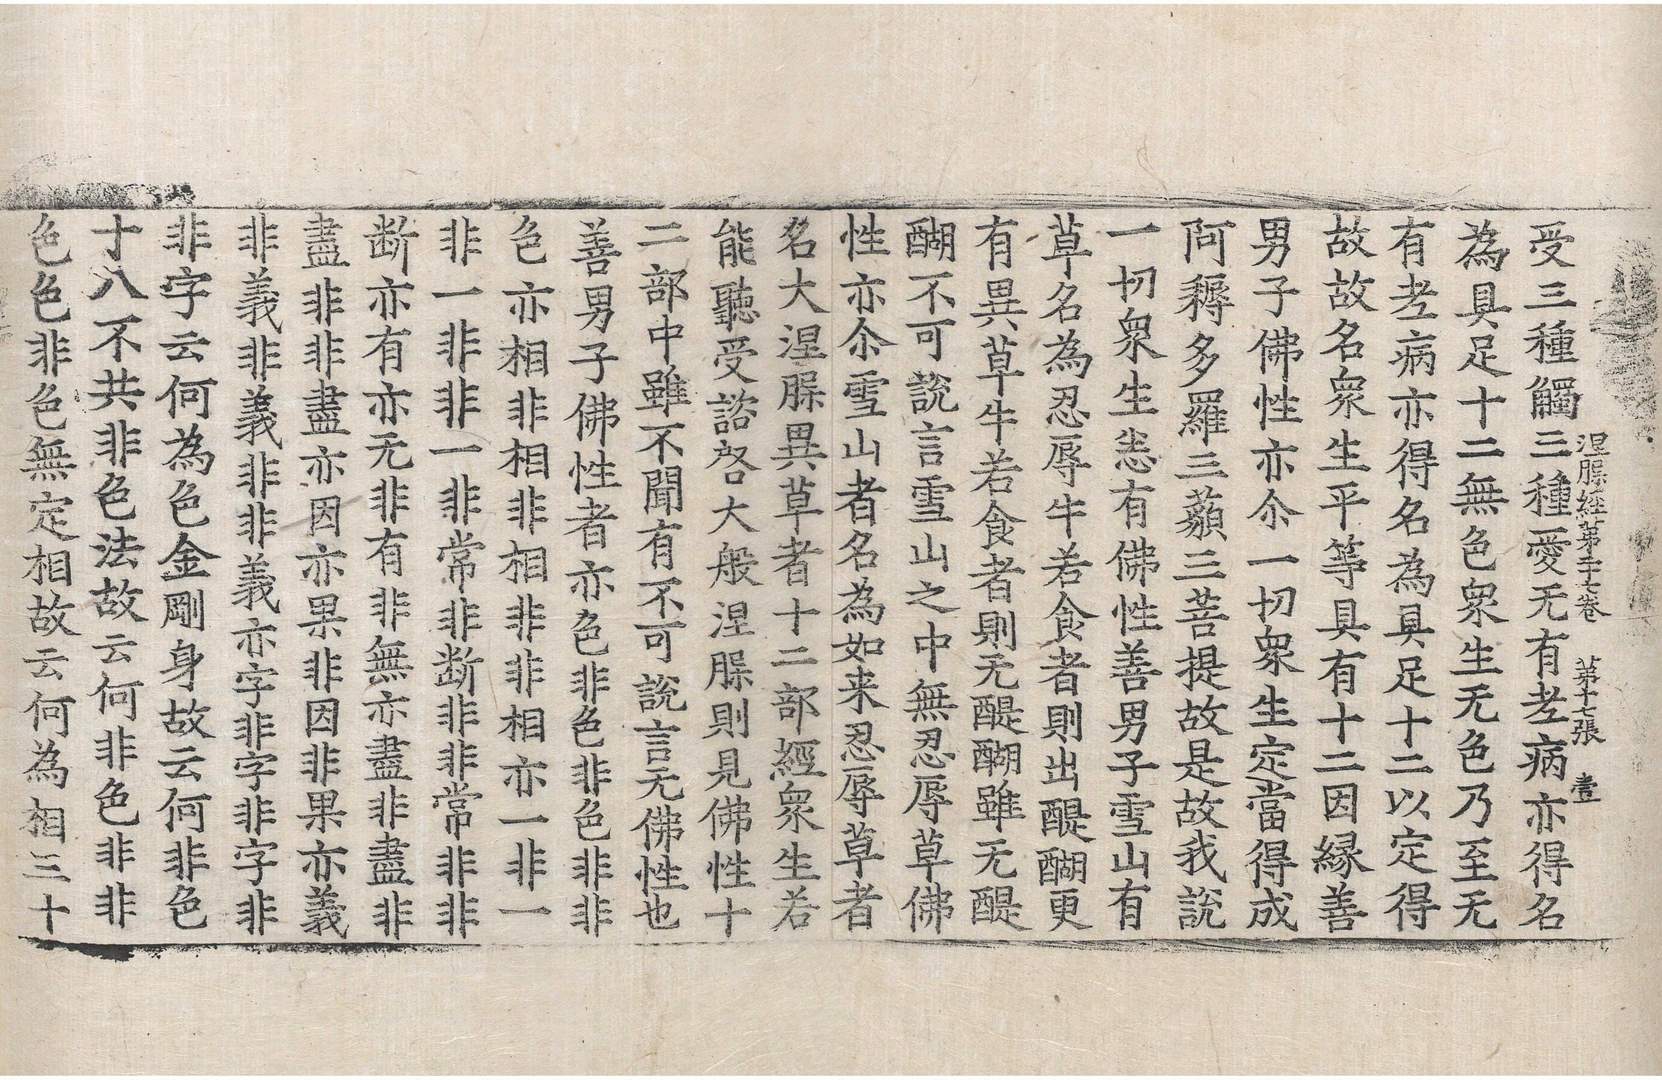 涅槃經第二十七卷　第十七張　壹
受三種觸三種愛无有老病亦得名
為具足十二無色衆生无色乃至无
有老病亦得名為具足十二以定得
故故名衆生平等具有十二因縁善
男子佛性亦尒一切衆生定當得成
阿耨多羅三藐三菩提故是故我說
一切衆生悉有佛性善男子雪山有
草名為忍辱牛若食者則出醍醐更
有異草牛若食者則无醍醐雖无醍
醐不可說言雪山之中無忍辱草佛
性亦尒雪山者名為如来忍辱草者
名大涅槃異草者十二部經衆生若
能聽受諮啓大般涅槃則見佛性十
二部中雖不聞有不可說言无佛性也
善男子佛性者亦色非色非色非非
色亦相非相非相非非相亦一非一
非一非非一非常非断非非常非非
断亦有亦无非有非無亦盡非盡非
盡非非盡亦因亦果非因非果亦義
非義非義非非義亦字非字非字非
非字云何為色金剛身故云何非色
十八不共非色法故云何非色非非
色色非色無定相故云何為相三十